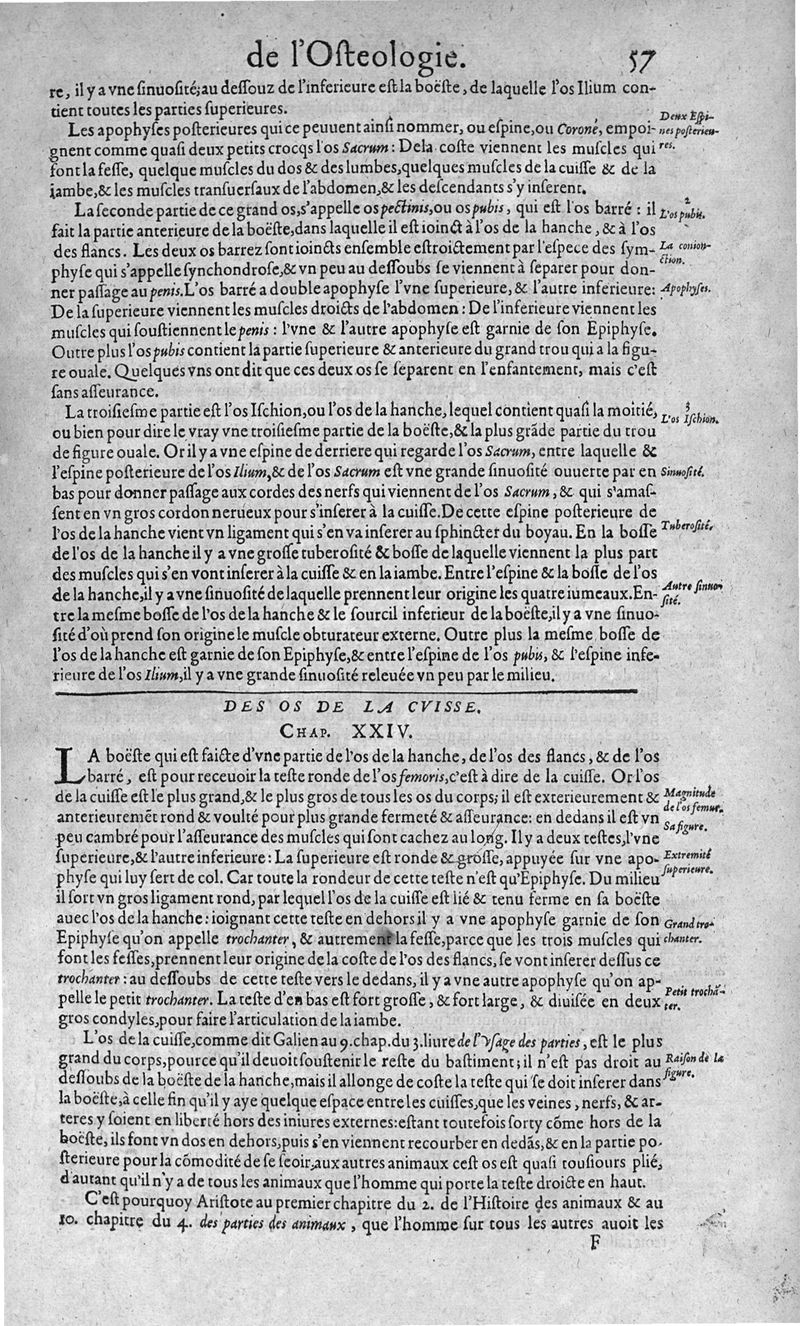 de l'Osteologie. 57
re, il y a vne sinuosité; au dessouz de l'inferieure est la boëste, de laquelle l'os Ilium con-
tient toutes les parties superieures.
Les apophyses posterieures qui ce peuuent ainsi nommer, ou espine, ou Coroné, empoi-
Deux Espi-
nes posterieu-
res.
gnent comme quasi deux petits crocqs l'os Sacrum : De la coste viennent les muscles qui
font la fesse, quelque muscles du dos & des lumbes, quelques muscles de la cuisse & de la
iambe, & les muscles transuersaux de l'abdomen, & les descendants s'y inserent.
La seconde partie de ce grand os, s'appelle os pectinis, ou os pubis, qui est l'os barré : il
2
L'os pubis.
fait la partie anterieure de la boëste, dans laquelle il est ioinct à l'os de la hanche, & à l'os
des flancs. Les deux os barrez sont ioincts ensemble estroictement par l'espece des sym-
La conion-
ction.
physe qui s'appelle synchondrose, & vn peu au dessoubs se viennent à separer pour don-
ner passage au penis. L'os barré a double apophyse l'vne superieure, & l'autre inferieure:
Apophyses.
De la superieure viennent les muscles droicts de l'abdomen : De l'inferieure viennent les
muscles qui soustiennent le penis : l'vne & l'autre apophyse est garnie de son Epiphyse.
Outre plus l'os pubis contient la partie superieure & anterieure du grand trou qui a la figu-
re ouale. Quelques vns ont dit que ces deux os se separent en l'enfantement, mais c'est
sans asseurance.
La troisiesme partie est l'os Ischion, ou l'os de la hanche, lequel contient quasi la moitié,
3
L'os Ischion.
ou bien pour dire le vray vne troisiesme partie de la boëste, & la plus grãde partie du trou
de figure ouale. Or il y a vne espine de derriere qui regarde l'os Sacrum, entre laquelle &
l'espine posterieure de l'os Ilium, & de l'os Sacrum est vne grande sinuosité ouuerte par en
Sinuosité.
bas pour donner passage aux cordes des nerfs qui viennent de l'os Sacrum, & qui s'amas-
sent en vn gros cordon nerueux pour s'inserer à la cuisse. De cette espine posterieure de
l'os de la hanche vient vn ligament qui s'en va inserer au sphincter du boyau. En la bosse
Tuberosité.
de l'os de la hanche il y a vne grosse tuberosité & bosse de laquelle viennent la plus part
des muscles qui s'en vont inserer à la cuisse & en la iambe. Entre l'espine & la bosse de l'os
de la hanche, il y a vne sinuosité de laquelle prennent leur origine les quatre iumeaux. En-
Autre sinuo-
sité.
tre la mesme bosse de l'os de la hanche & le sourcil inferieur de la boëste, il y a vne sinuo-
sité d'où prend son origine le muscle obturateur externe. Outre plus la mesme bosse de
l'os de la hanche est garnie de son Epiphyse, & entre l'espine de l'os pubis, & l'espine infe-
rieure de l'os Ilium, il y a vne grande sinuosité releuée vn peu par le milieu.
DES OS DE LA CVISSE.
CHAP. XXIV.
LA boëste qui est faicte d'vne partie de l'os de la hanche, de l'os des flancs, & de l'os
barré, est pour receuoir la teste ronde de l'os femoris, c'est à dire de la cuisse. Or l'os
de la cuisse est le plus grand, & le plus gros de tous les os du corps; il est exterieurement &
Magnitude
de l'os femur.
anterieuremẽt rond & voulté pour plus grande fermeté & asseurance: en dedans il est vn
Sa figure.
peu cambré pour l'asseurance des muscles qui sont cachez au long. Il y a deux testes, l'vne
superieure, & l'autre inferieure : La superieure est ronde & grosse, appuyée sur vne apo-
Extremité
superieure.
physe qui luy sert de col. Car toute la rondeur de cette teste n'est qu'Epiphyse. Du milieu
il sort vn gros ligament rond, par lequel l'os de la cuisse est lié & tenu ferme en sa boëste
auec l'os de la hanche : ioignant cette teste en dehors il y a vne apophyse garnie de son
Grand tro-
chanter.
Epiphyse qu'on appelle trochanter, & autrement la fesse, parce que les trois muscles qui
font les fesses, prennent leur origine de la coste de l'os des flancs, se vont inserer dessus ce
trochanter : au dessoubs de cette teste vers le dedans, il y a vne autre apophyse qu'on ap-
pelle le petit trochanter. La teste d'en bas est fort grosse, & fort large, & diuisée en deux
Petit trochã-
ter.
gros condyles, pour faire l'articulation de la iambe.
L'os de la cuisse, comme dit Galien au 9. chap. du 3. liure de l'Vsage des parties, est le plus
grand du corps, pource qu'il deuoit soustenir le reste du bastiment; il n'est pas droit au
Raison de la
figure.
dessoubs de la boëste de la hanche, mais il allonge de coste la teste qui se doit inserer dans
la boëste, à celle fin qu'il y aye quelque espace entre les cuisses, que les veines, nerfs, & ar-
teres y soient en liberté hors des iniures externes: estant toutefois sorty cõme hors de la
boëste, ils font vn dos en dehors, puis s'en viennent recourber en dedãs, & en la partie po-
sterieure pour la cõmodité de se seoir, aux autres animaux cest os est quasi tousiours plié,
d'autant qu'il n'y a de tous les animaux que l'homme qui porte la teste droicte en haut.
C'est pourquoy Aristote au premier chapitre du 2. de l'Histoire des animaux & au
10. chapitre du 4. des parties des animaux, que l'homme sur tous les autres auoit les
F